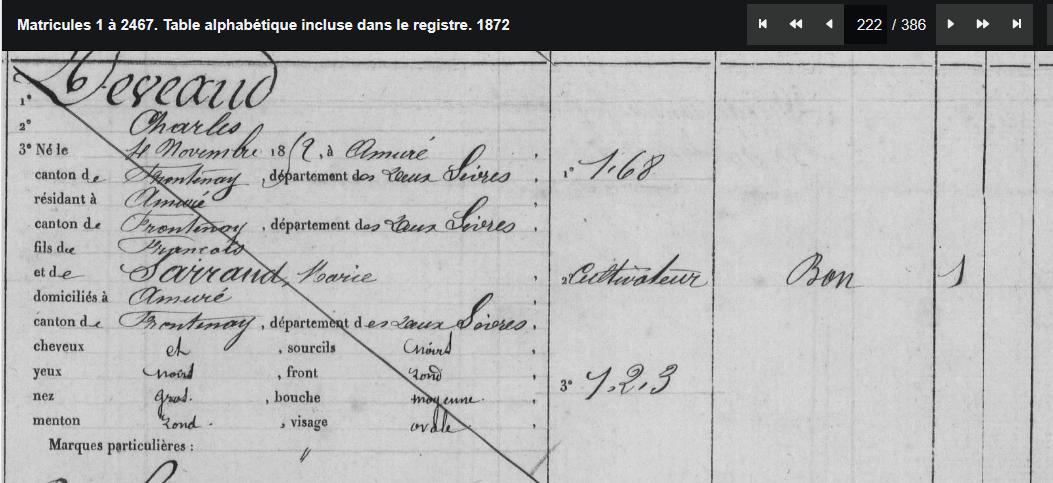 Matricules 1 à 2467. Table alphabétique incluse dans le registre. 1872
222 / 386
1° Deveaud
2° Charles
3° Né le 4 Novembre 1852, à Amuré,
canton de Frontenay, département des Deux Sèvres,
résidant à Amuré,
canton de Frontenay, département des Deux Sèvres,
fils de François
et de Sarraud, Marie,
domiciliés à Amuré
canton de Frontenay, département des Deux Sèvres,
cheveux et, sourcils noirs,
yeux noirs, front rond,
nez gros., bouche moyenne.,
menton rond., visage ovale,
Marques particulières : "
1° 1.68
2° Cultivateur
3° 1.2.3
Bon
1